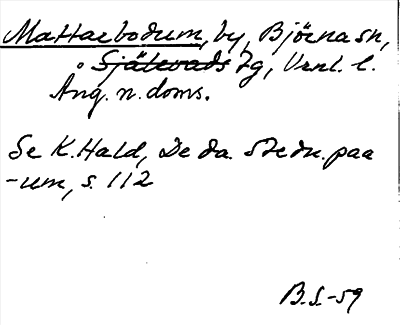 Mattarbodum, by, Björna sn,
o Själevads tg, Vnl. l.
Ång. n. doms.
Se K. Hald, De da. Stedn. paa
-um, s. 112
B.S.-59